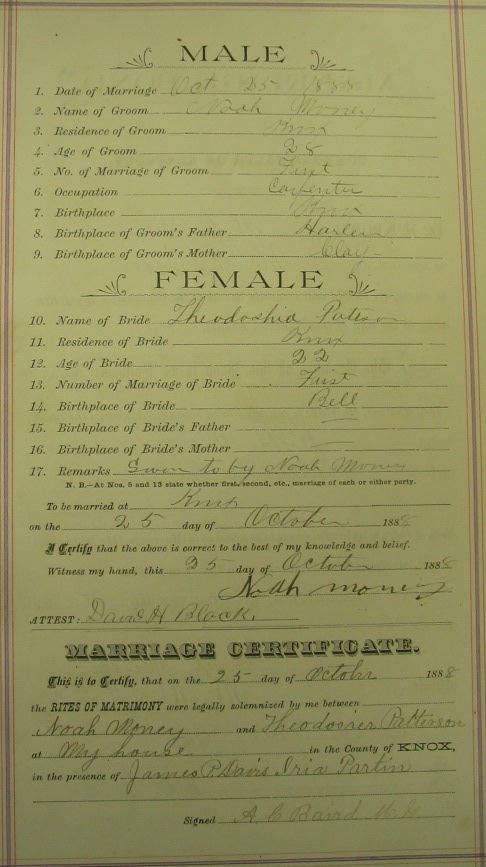 MALE
1. Date of Marriage Oct 25 1888
2. Name of Groom Noah Money
3. Residence of Groom Knx
4. Age of Groom 28
5. No. of Marriage of Groom First
6. Occupation Carpenter
7. Birthplace Knx
8. Birthplace of Groom's Father Harlen
9. Birthplace of Groom's Mother Clay
FEMALE
10. Name of Bride Theodoshia
11. Residence of Bride Knx
12. Age of Bride 22
13. Number of Marriage of Bride First
14. Birthplace of Bride Bell
15. Birthplace of Bride's Father
16. Birthplace of Bride's Mother
17. Remarks Swon to by Noah Money
N. B.—At Nos. 5 and 13 state whether first, second, etc., marriage of each or either party.
To be married at Knx
on the 25 day of October 1888
I Certify that the above is correct to the best of my knowledge and belief.
Witness my hand, this 25 day of October 1888
Noah money
ATTEST: David H Black.
MARRIAGE CERTIFICATE.
This is to Certify, that on the 25 day of Octobr 1888
the RITES OF MATRIMONY were legally solemnized by me between
Noah Money and Patterson
at My house in the County of KNOX,
in the presence of James P. Davis Iria Partin
Signed A. C Baird